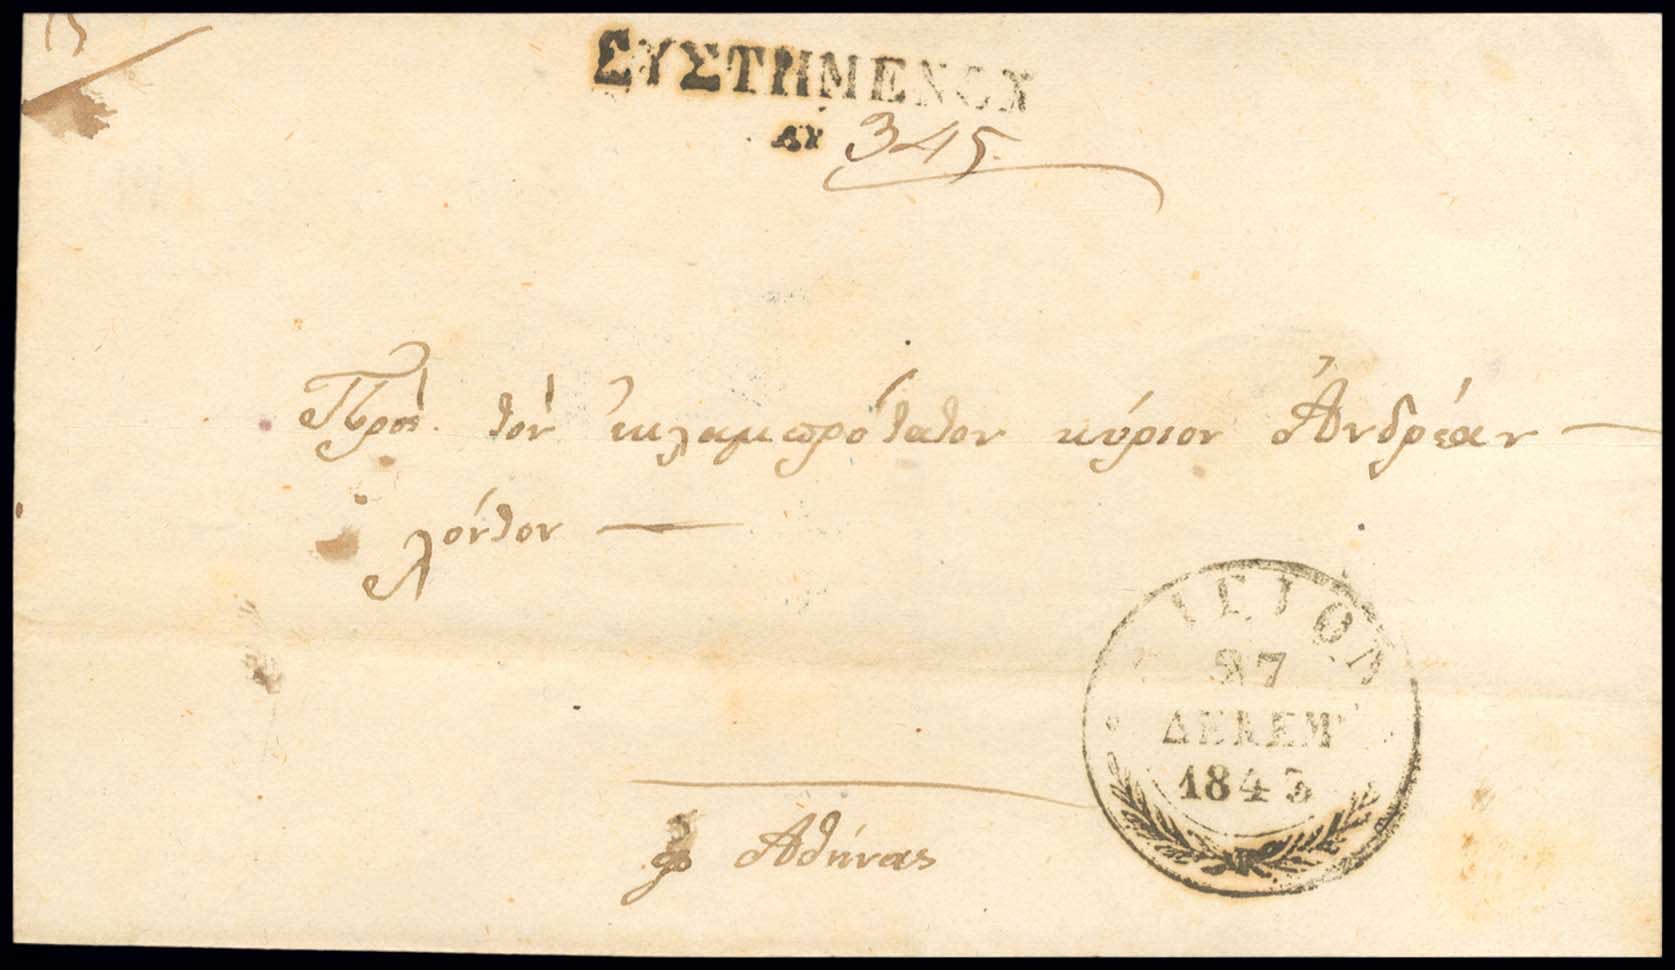 ΣΥΣΤΗΜΕΝΟΝ
αν 345
Πρὸς τὸν ἐκλαμπρότατον κύριον Ἀνδρέαν
λόντον
27
ΔΕΚΕΜ
1843
Ἀθήνας